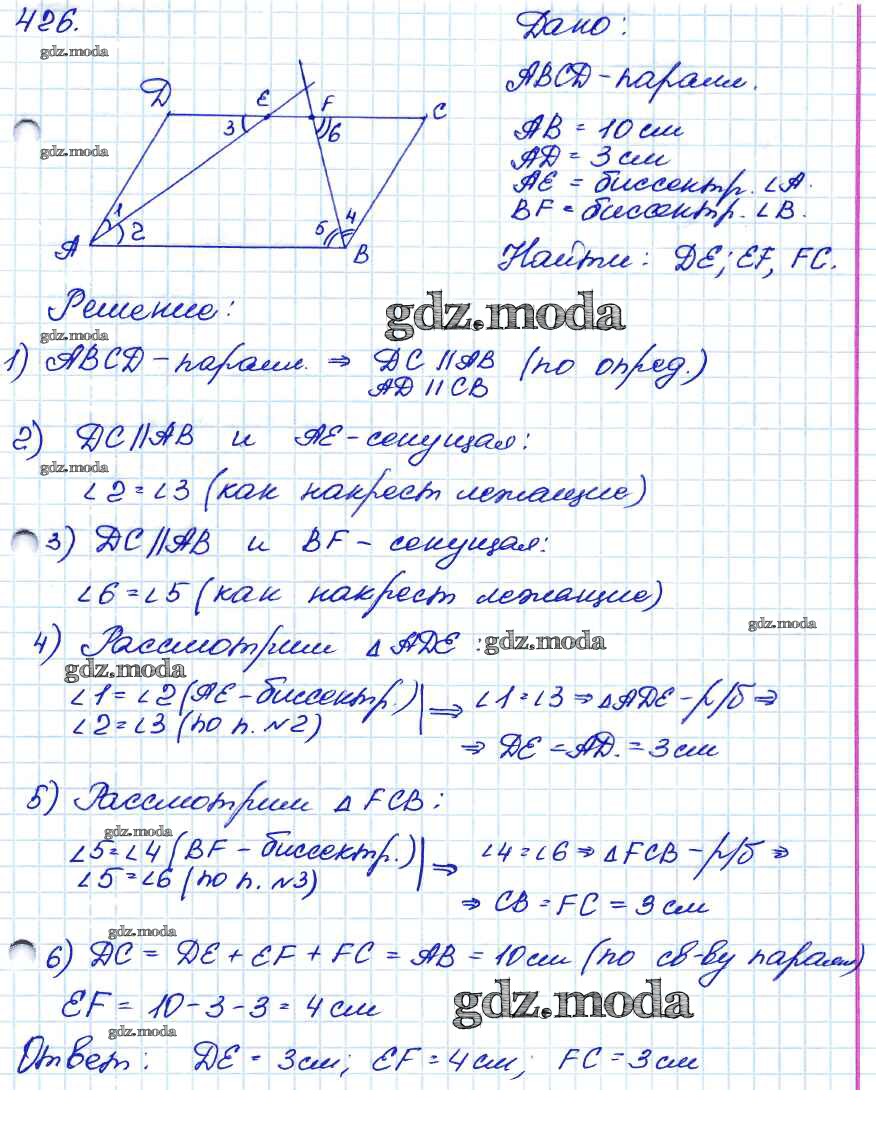 426.
gdz.moda
Дано:
ABCD - парал.
AB = 10 см
AD = 3 см
AE = биссектр. ∠A.
BF = биссектр. ∠B.
Найти: DE; EF, FC.
D E F C
3 6
gdz.moda
1 2 5 4
A B
Решение:
gdz.moda
gdz.moda
1) ABCD - парал. ⇒ DC // AB (по опред.)
AD // CB
2) DC // AB и AE - секущая:
gdz.moda
∠2 = ∠3 (как накрест лежащие)
3) DC // AB и BF - секущая:
∠6 = ∠5 (как накрест лежащие)
gdz.moda
4) Рассмотрим △ADE :
gdz.moda
gdz.moda
∠1 = ∠2 (AE - биссектр.) | ⇒ ∠1 = ∠3 ⇒ △ADE - р/б ⇒
∠2 = ∠3 (по п. №2)
⇒ DE = AD. = 3 см
5) Рассмотрим △ FCB :
gdz.moda
∠5 = ∠4 (BF - биссектр.) | ⇒ ∠4 = ∠6 ⇒ △FCB - р/б ⇒
∠5 = ∠6 (по п. №3)
⇒ CB = FC = 3 см
gdz.moda
6) DC = DE + EF + FC = AB = 10 см (по св-ву парал)
EF = 10 - 3 - 3 = 4 см
gdz.moda
gdz.moda
Ответ: DE = 3 см; EF = 4 см; FC = 3 см